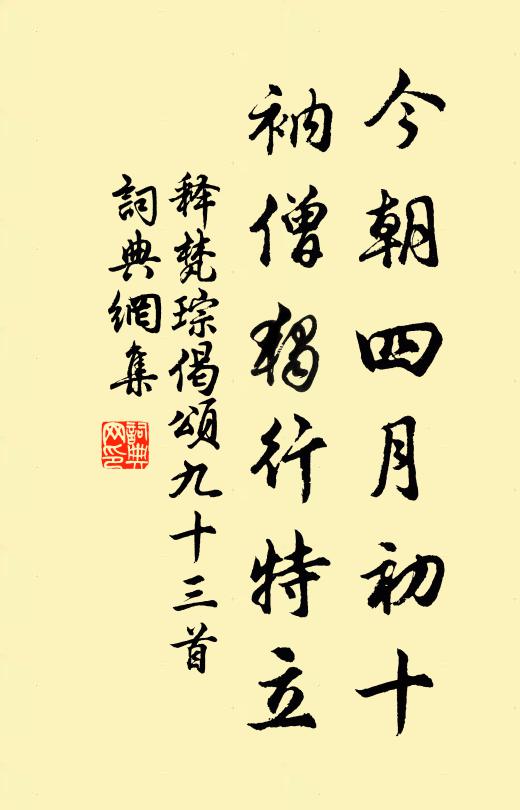 今朝四月初十
衲僧独行特立
释梵琮偈頌九十三首
詞典網集
詞典網印